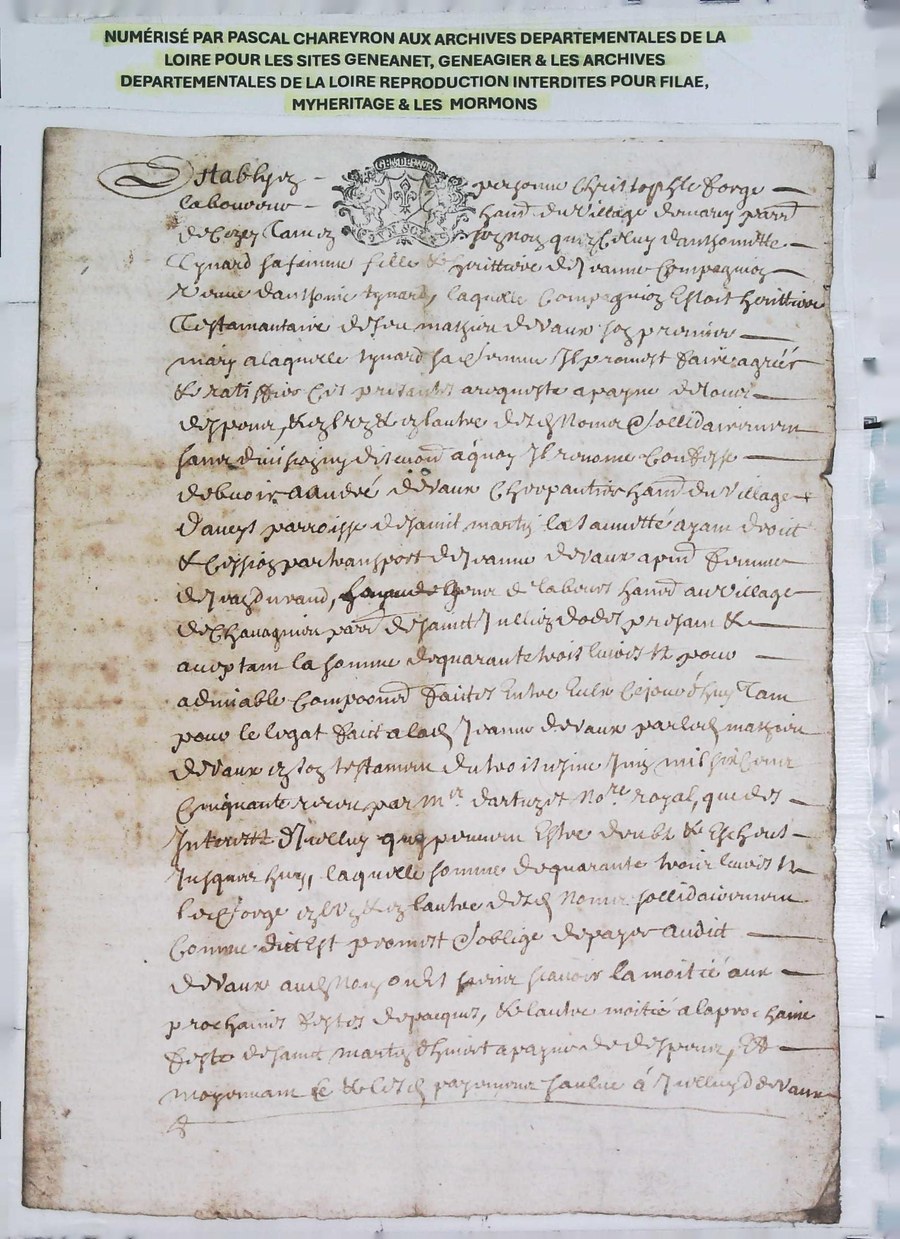 NUMÉRISÉ PAR PASCAL CHAREYRON AUX ARCHIVES DEPARTEMENTALES DE LA
LOIRE POUR LES SITES GENEANET, GENEAGIER & LES ARCHIVES
DEPARTEMENTALES DE LA LOIRE REPRODUCTION INTERDITES POUR FILAE,
MYHERITAGE & LES MORMONS
Establyen personne Christophle Forge
laboureur habt du Village de mary parr
de tant en son nom que celuy danthoinette
Eynard sa femme fille & herittiere de Jeanne Compagnion
Vefve danthoine Eynard, laquelle Compagnion Estoit herittiere
Testamantaire de feu mathieu devaux son premier
mary a laquelle Eynard sa femme Il promest faire agréer
& ratiffier Ces presantes a peyne de tous
despens, & en lun & en lautre desd Noms Sollidairement
sans division ny discution à quoy Il renonce Confesse
debvoir a André devaux Charpantier habt du Village
paroisse de sainct martin la sauvetté ayant droit
& Cession par transport de Jeanne devaux femme
de durand, laboureur habt au Village
de parr de sainct Jullien dodes presant &
acceptant la somme de quarante trois livres tz pour
admiable Composion faictes Entre Eulx Cejourd'huy Tant
pour le legat faict a lad Jeanne devaux par led mathieu
devaux en son testament du troisiesme Juin mil six Cent
Cinquante receu par Mr Nore royal, que des
Interestz d'Icelluy que peuvent Estre deubt & Escheus
Jusques huy, laquelle somme de quarante trois livres tz
led Forge en lun & en lautre desd Noms sollidairement
Comme dict Est promest & soblige de payer audict
devaux aud Nom scavoir la moitié aux
prochaines festes de pacques, & lautre moitié a la prochaine
feste de sainct martin d'hivert a payne de despens, Et
moyennant & lesd payement a Icelluy devaux